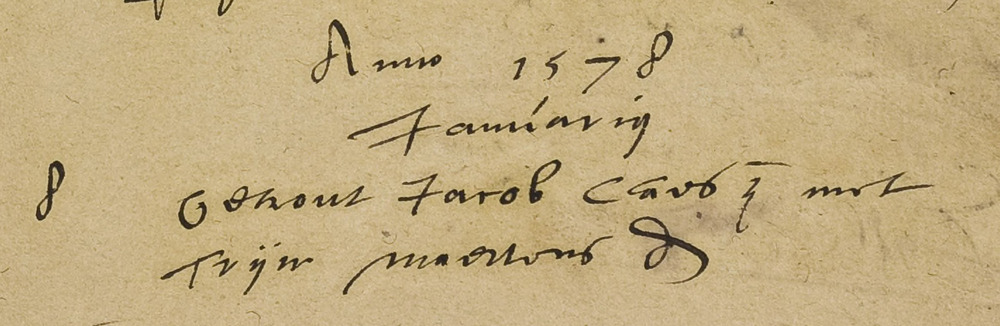 Anno 1578
Januarij
8 Getrout Jacob Claes z met
Trijn Maertens D